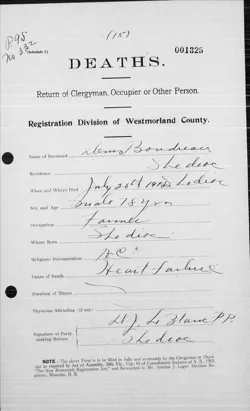 P. 95
No 332
(Schedule C)
(15)
001325
DEATHS.
Return of Clergyman, Occupier or Other Person.
Registration Division of Westmorland County.
Name of Deceased Boudreau
Residence Shediac
When and Where Died July 26th Shediac
Sex, and Age Male 78 yrs
Occupation Farmer
Where Born Shediac
Religious Denomination R.C.
Cause of Death Heart failure
Duration of Illness
Physician Attending (if any)
Signature of Party making Return J. LeBlanc P.P.
Shediac
NOTE.—The above Form is to be filled in fully and correctly by the Clergyman or Physician as required by Act of Assembly, Cap. 54 of Consolidated Statutes of N. B. 1903, "The New Brunswick Registration Act," and forwarded to Division Registrar, Moncton, N. B.